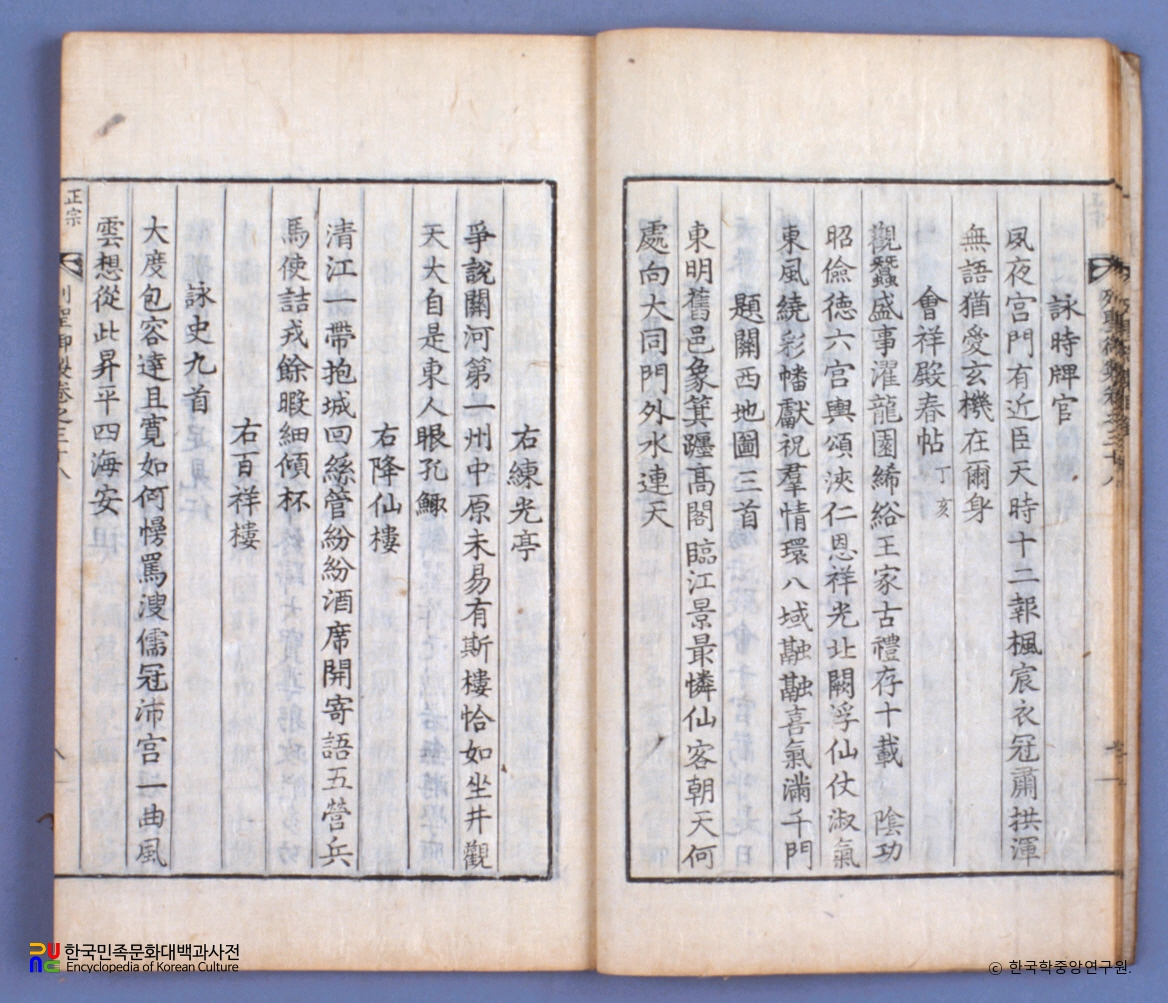 詠時牌官
夙夜宮門有近臣天時十二報楓宸衣冠肅拱渾
無語猶愛玄機在爾身
會祥殿春帖丁亥
觀蠶盛事濯龍園絺綌王家古禮存十載 陰功
昭儉徳六宮輿頌浹仁恩祥光北闕浮仙仗淑氣
東風繞彩幡獻祝羣情環八域融融喜氣滿千門
題關西地圖三首
東明舊邑象箕躔高閣臨江景最憐仙客朝天何
處向大同門外水連天
右練光亭
爭說關河第一州中原未易有斯樓恰如坐井觀
天大自是東人眼孔鯫
右降仙樓
清江一帶抱城回絲管紛紛酒席開寄語五營兵
馬使詰戎餘暇細傾杯
右百祥樓
詠史九首
大度包容達且寬如何慢罵溲儒冠沛宮一曲風
雲想從此昇平四海安
正宗
列聖御製卷之三十八
한국민족문화대백과사전
Encyclopedia of Korean Culture
© 한국학중앙연구원.